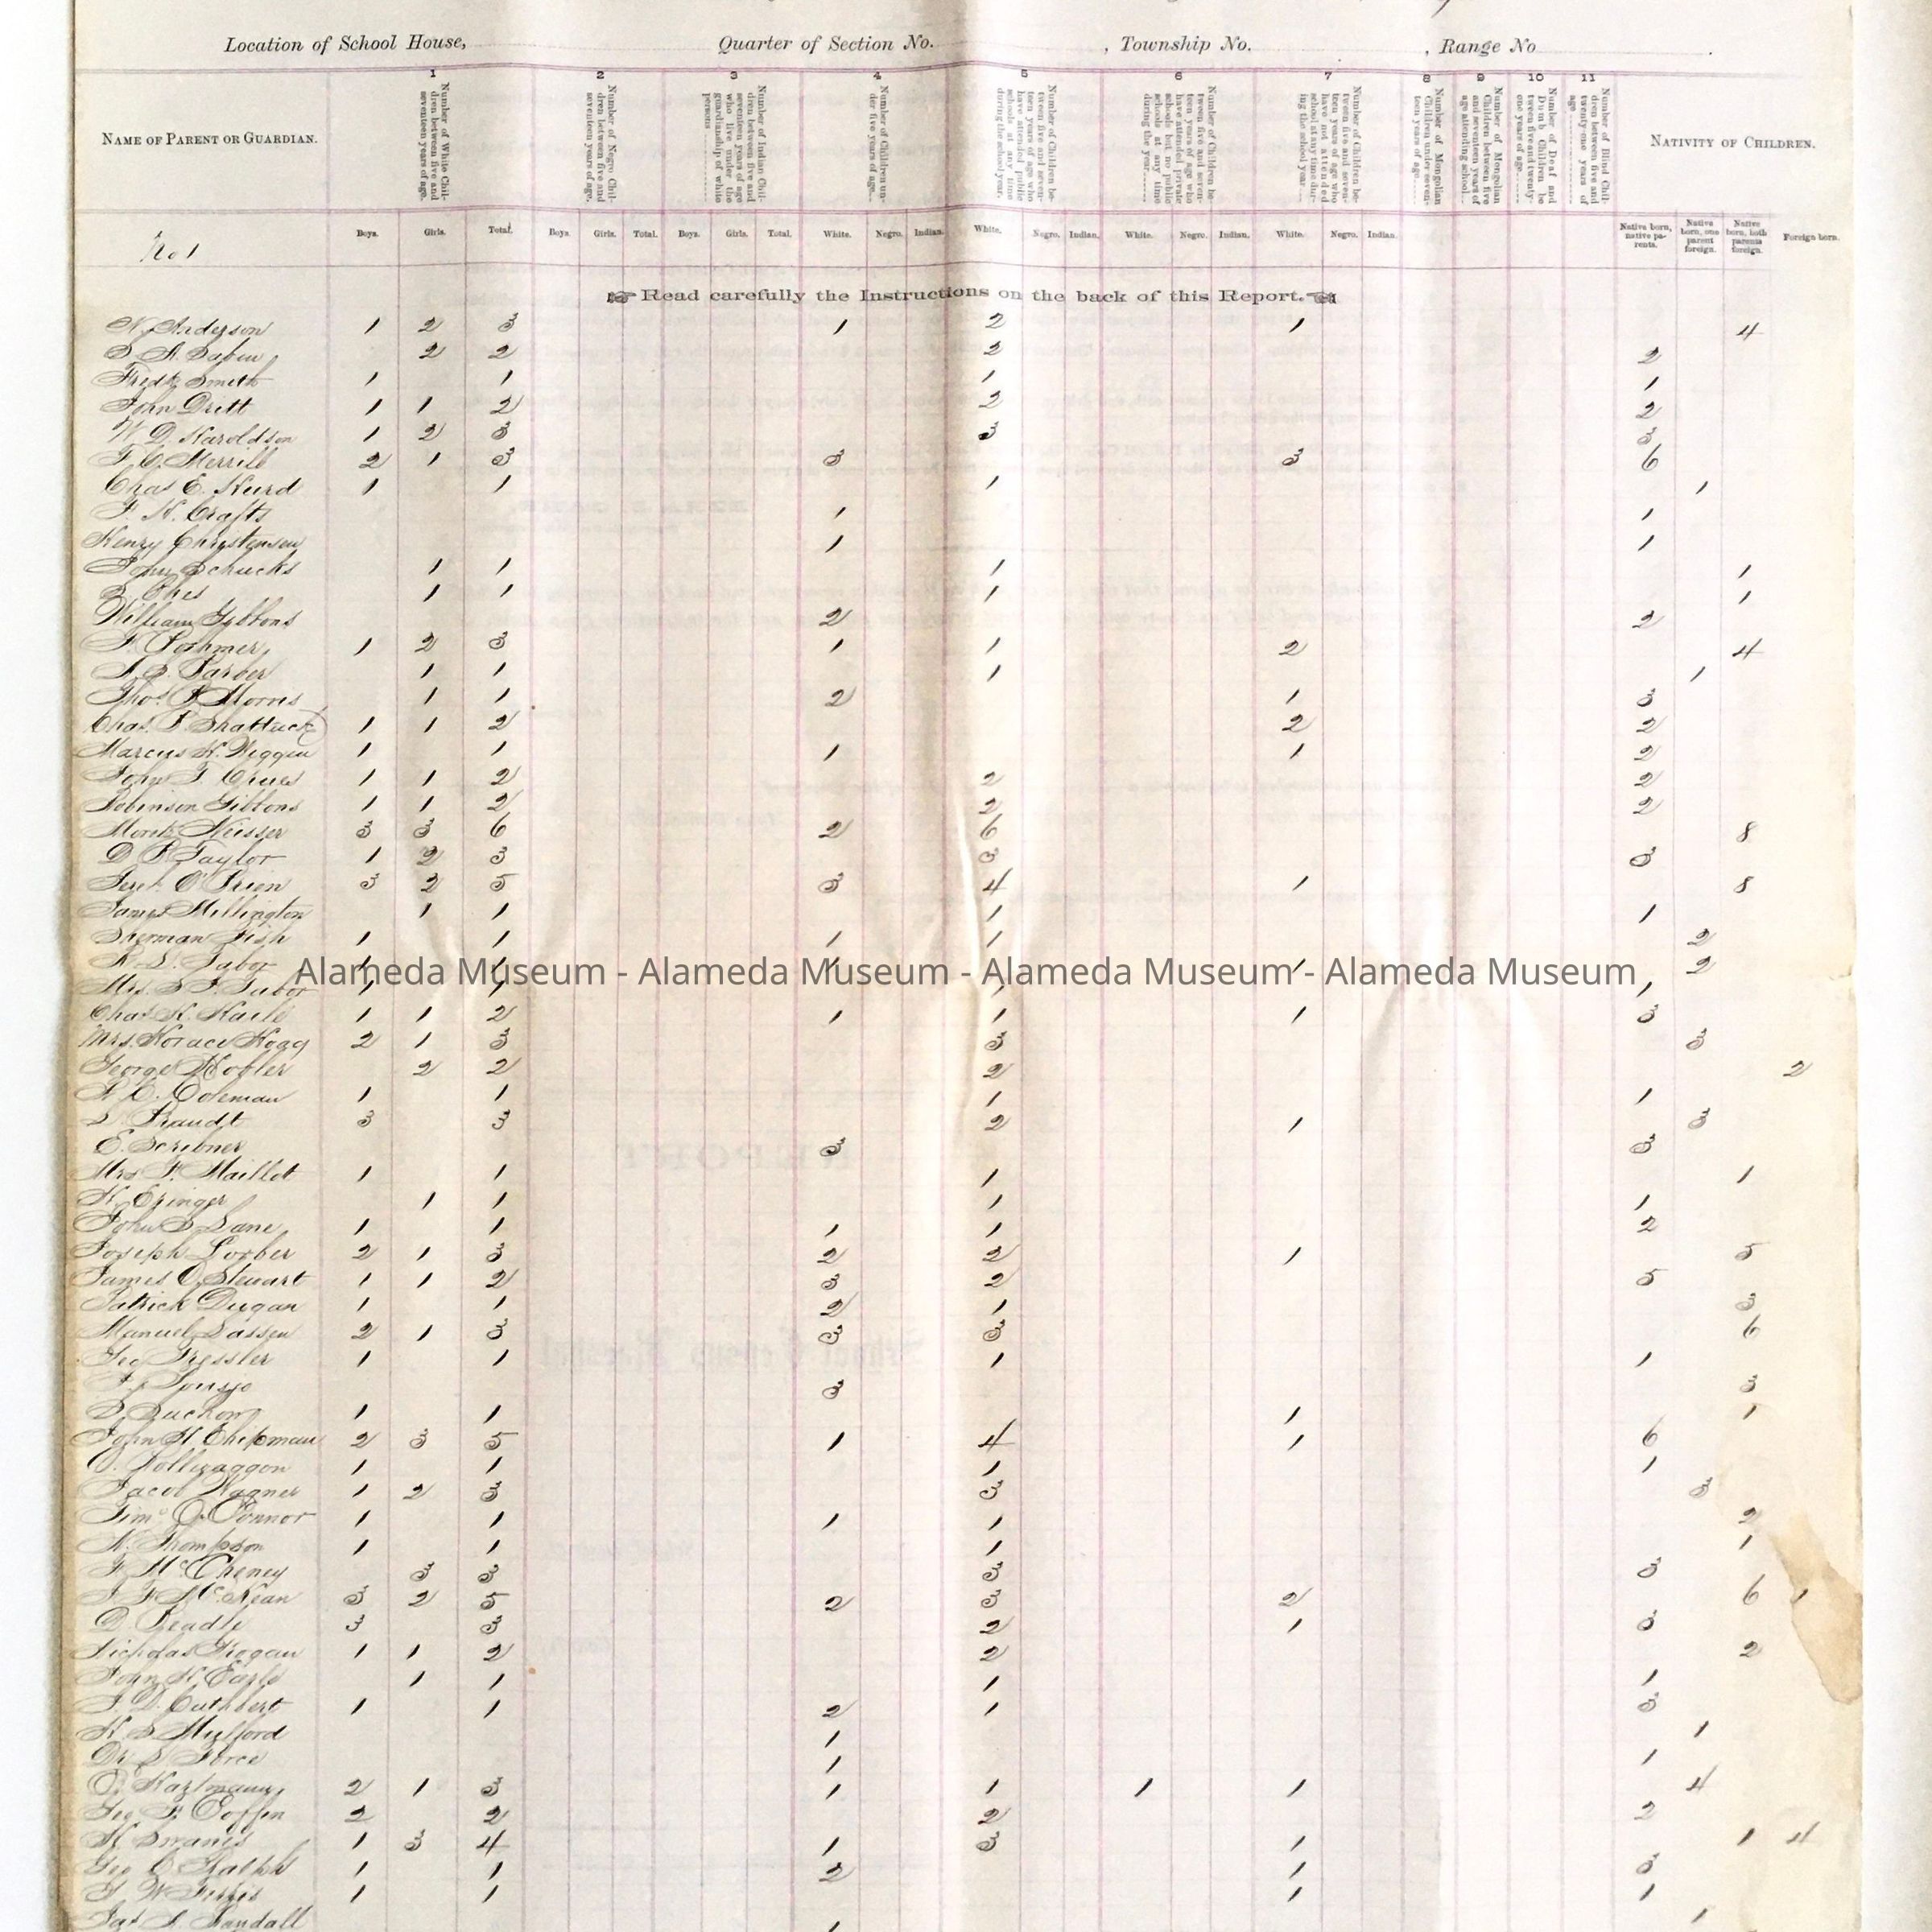 Location of School House, Quarter of Section No. , Township No. , Range No .
1 2 3 4 5 6 7 8 9 10 11
NAME OF PARENT OR GUARDIAN.
Number of White Children between five and seventeen years of age.
Number of Negro Children between five and seventeen years of age.
Number of Indian Children between five and seventeen years of age who live under the guardianship of white persons
Number of Children under five years of age.
Number of Children between five and seventeen years of age who have attended public schools at any time during the school year.
Number of Children between five and seventeen years of age who have attended private schools but no public schools at any time during the year.
Number of Children between five and seventeen years of age who have not attended school at any time during the school year.
Number of Mongolian Children under seventeen years of age.
Number of Mongolian Children between five and seventeen years of age attending school.
Number of Deaf and Dumb Children between five and twenty-one years of age.
Number of Blind Children between five and twenty-one years of age
NATIVITY OF CHILDREN.
No 1 Boys. Girls. Total. Boys. Girls. Total. Boys. Girls. Total. White. Negro. Indian. White. Negro. Indian. White. Negro. Indian. White. Negro. Indian. Native born, native parents. Native born, one parent foreign. Native born, both parents foreign. Foreign born.
Read carefully the Instructions on the back of this Report.
N. Anderson 1 2 3 1 2 1 4
2 2 2 2
Fredk Smith 1 1 1 1
John Dritt 1 1 2 2 2
W. D. Haroldson 1 2 3 3 3
F. C. Merrill 2 1 3 3 3 6
Chas E. Hurd 1 1 1 1
F. H. Crafts 1 1
Henry Christensen 1 1
John Schucks 1 1 1 1
1 1 1 1
William Gibbons 2 2
1 2 3 1 1 2 4
Barber 1 1 1 1
Thos. Morris 1 1 2 1 3
Chas. F. Shattuck 1 1 2 2 2
Marcus H. Wiggin 1 1 1 1 2
John 1 1 2 2 2
Robinson Gibbons 1 1 2 2 2
Moritz Neisser 3 3 6 2 6 8
D. P. Taylor 1 2 3 3 3
O'Brien 3 2 5 3 4 1 8
James Millington 1 1 1 1
Sherman Fish 1 1 1 1 2
Tabor 1 1 1 1 2
Alameda Museum - Alameda Museum - Alameda Museum - Alameda Museum
Mrs. Tabor 1 1 1 1
Chas. H. Haile 1 1 2 1 1 1 3
Mrs. Horace Hoag 2 1 3 3 3
George Hobler 2 2 2 2
Coleman 1 1 1 1
Brandt 3 3 2 1 3
E. Scribner 3 3
Mrs. F. Maillot 1 1 1 1
H. Epinger 1 1 1 1
John S. Lane 1 1 1 1 2
Joseph Lorber 2 1 3 2 2 1 5
James C. Stewart 1 1 2 3 2 5
Patrick Dugan 1 1 2 1 3
Manuel Lassen 2 1 3 3 3 6
Geo Tressler 1 1 1 1
3 3
Duchow 1 1 1 1
John H. Chipman 2 3 5 1 4 1 6
1 1 1 1
Jacob Wagner 1 2 3 3 3
O'Connor 1 1 1 1 2
N. Thompson 1 1 1 1
McCheney 3 3 3 3
McKean 3 2 5 2 3 2 6 1
D. Beadle 3 3 2 1 3
Nicholas Grogan 1 1 2 2 2
John H. Earle 1 1 1 1
Cuthbert 1 1 2 1 3
Mulford 1 1
Dr. Force 1 1
2 1 3 1 1 1 1 4
Geo. F. Coffin 2 2 2 2
1 3 4 1 3 1 1 4
Geo. C. Ralph 1 1 2 1 3
1 1 1 1
Randall 1 1